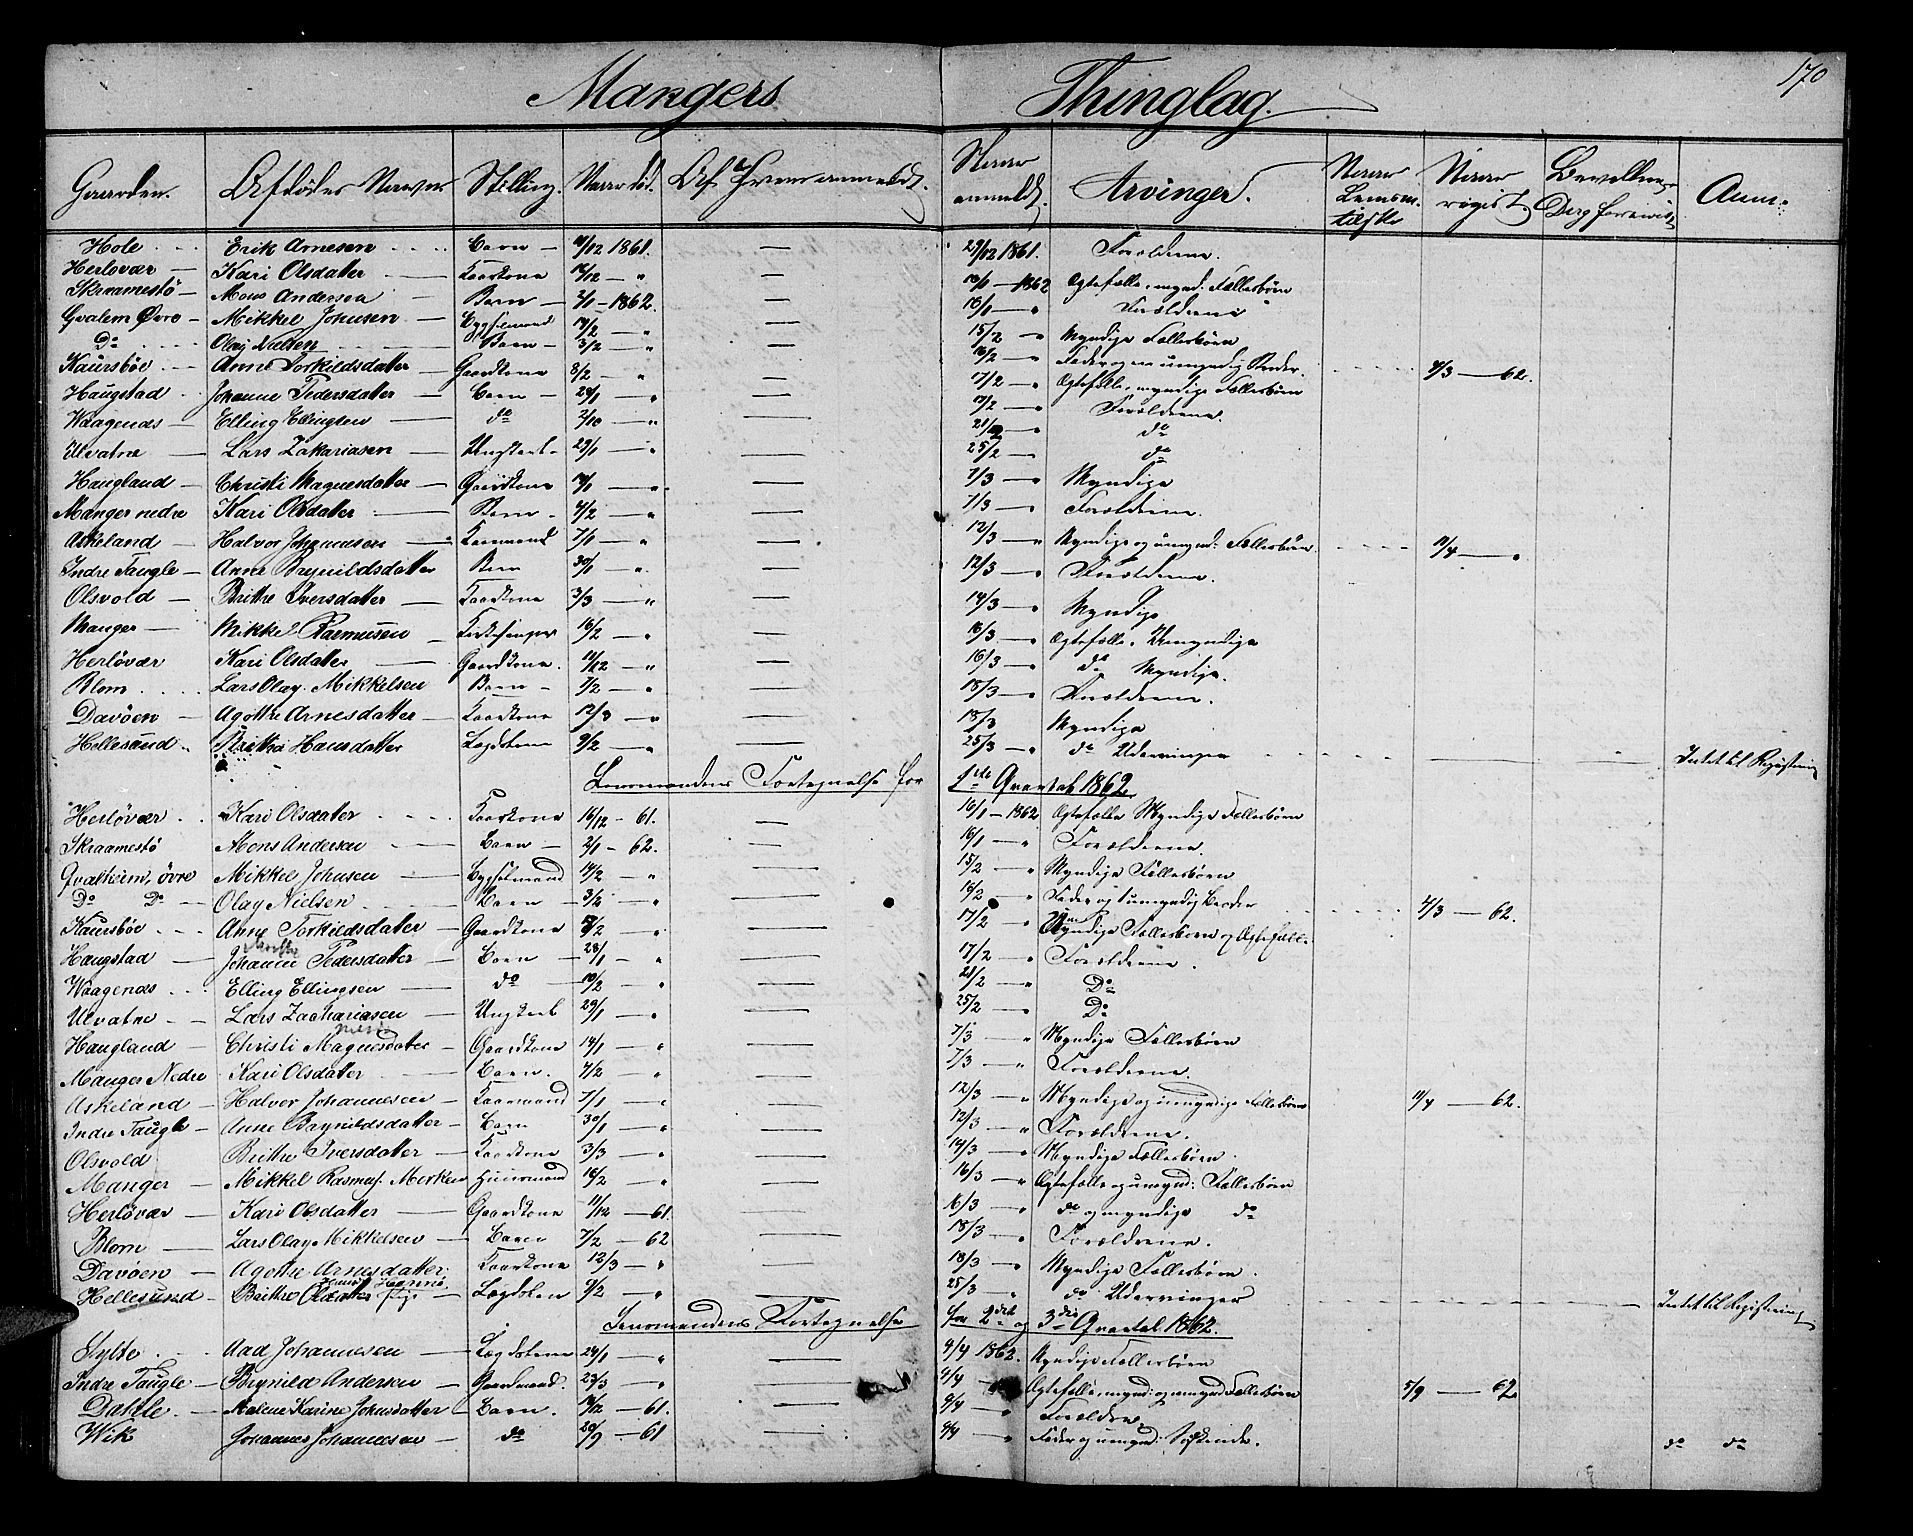 170
Mangers Thinglag.
Gaarden. Afdødes Navn Stilling. Naar død. Af Hvem anmeldt. Naar anmeldt. Arvinger. Naar Lensm: tilskr. Naar regist. Anm:
Hole Erik Arnesen Barn 1861. — 29/12 1861. Forældrene.
Herløvær Kari Olsdatter Kaarkone 16/12 " — 16/1 1862 Ægtefælle, mynd: Fællesbørn
Skraamestø Mons Andersen Barn 2/1 1862. — 16/1 " Forældrene
Gvalem Øvre Mikkel Johnsen Bygselmand 14/2 " — 15/2 " Myndige Fællesbørn
Do Olay Nielsen Barn 3/2 " — 16/2 " Fader og en umyndig Broder. 4/3 — 62.
Kaursbøe Anne Torkildsdatter Gaardkone 8/2 " — 17/2 " Ægtefælle, myndige Fællesbørn
Haugstad Johanne Pedersdatter Barn 28/1 " — 17/2 " Forældrene.
Waagenæs Elling Ellingsen do " — do
Ulvatne Lars Zakariasen Ungkarl 29/1 " — 25/2 " do
Haugland Christi Magnesdatter Gaardkone 14/1 " — 7/3 " Myndige
Manger nedre Kari Olsdatter Barn 4/2 " — 7/3 " Forældrene.
Askeland Halvor Johannesen Kaarmand 7/1 " — 12/3 " Myndige og umynd: Fællesbørn 11/4 — "
Indre Taugle Anne Brynildsdatter Barn 30/1 " — 12/3 " Forældrene.
Olsvold Brithe Iversdatter Kaarkone 3/3 " — 14/3 " Myndige
Manger Mikkel Rasmusen Kirkesanger 16/2 " — 16/3 " Ægtefælle, Umyndige
Herløvær Kari Olsdatter Gaardkone. 11/12 " — 16/3 " do Myndige.
Blom Lars Olay Mikkelsen Barn 7/2 " — 18/3 " Forældrene.
Davøen Agothe Arnesdatter Kaarkone 12/3 " — 18/3 Myndige
Hellesund Brithe Hansdatter Lægdslem 9/2 " — 25/3 " do Udarvinger Intet til Registering
Lensmandens Fortegnelse for 1ste Qvartal 1862.
Herløvær Kari Olsdatter Kaarkone 16/12 - 61. — 16/1 - 1862 Ægtefælle Myndige Fællesbørn
Skraamestø Mons Andersen Barn 2/1 - 62. — 16/1 " Forældrene.
Qvalheim, øvre Mikkel Johnsen Bygselmand 14/2 " — 15/2 " Myndige Fællesbørn
Do Do Olay Nielsen Barn 3/2 " — 16/2 " Fader og 1 umyndig Broder 4/3 — 62.
Kaursbøe Anne Torkildsdatter Gaardkone 8/2 " — 17/2 " Myndige Fællesbørn og Ægtefælle
Haugstad Johanne Pedersdatter Barn 28/1 " — 17/2 " Forældrene.
Waagenæs Elling Ellingsen do 10/2 " — 21/2 " Do
Ulvatne Lars Zachariasen Ungkarl 29/1 " — 25/2 " Do
Haugland Christi Magnesdatter Gaardkone 14/1 " — 7/3 " Myndige Fællesbørn
Manger Nedre Kari Olsdatter Barn. 4/2 " — 7/3 " Forældrene.
Askeland Halvor Johannesen Kaarmand 7/1 " — 12/3 " Myndige og umyndige Fællesbørn 11/4 — 62.
Indre Taugle Anne Brynildsdatter Barn 30/1 " — 12/3 " Forældrene.
Olsvold Brithe Iversdatter Kaarkone 3/3 " — 14/3 " Myndige Fællesbørn.
Manger Mikkel Rasmus. Morken Huusmand 16/2 " — 16/3 " Ægtefælle og umynd: Fællesbørn
Herløvær Kari Olsdatter Gaardkone 11/12 — 61. — 16/3 " do og myndige do
Blom Lars Olay Mikkelsen Barn 7/2 — 62 — 18/3 " Forældrene.
Davøen Agothe Arnesdatter. Kaarkone 12/3 " — 18/3 " Myndige Fællesbørn.
Hellesund Brithe Lægdslem 9/2 " — 25/3 " do Udarvinger Intet til Registering
Lensmandens Fortegnelse for 2det og 3die Qvartal 1862.
Sylte Aad Johannesen Lægdslem 24/1 " — 4/4 1862. Myndige Fællesbørn
Indre Taugle Brynild Andersen Gaardmand. 23/3 " — 4/4 Ægtefælle, mynd: og umynd Fællesbørn 5/9 — 62
Dahle Malene Karine Johnsdatter Barn. — 61. — " Forældre
Wik Johannes Johannesen do 20/9 — 61 — " Fader og umynd: Søskende. do do